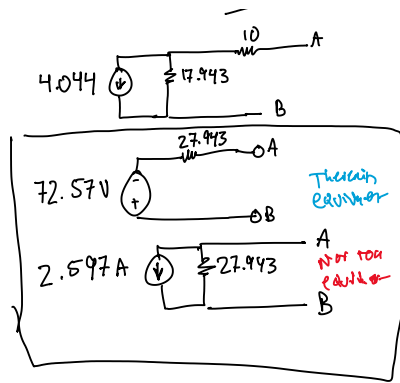 10
A
4.044
17.943
B
27.943
A
72.57V
- +
B
Thevenin
equivalent
2.597A
27.943
A
Norton
equivalent
B